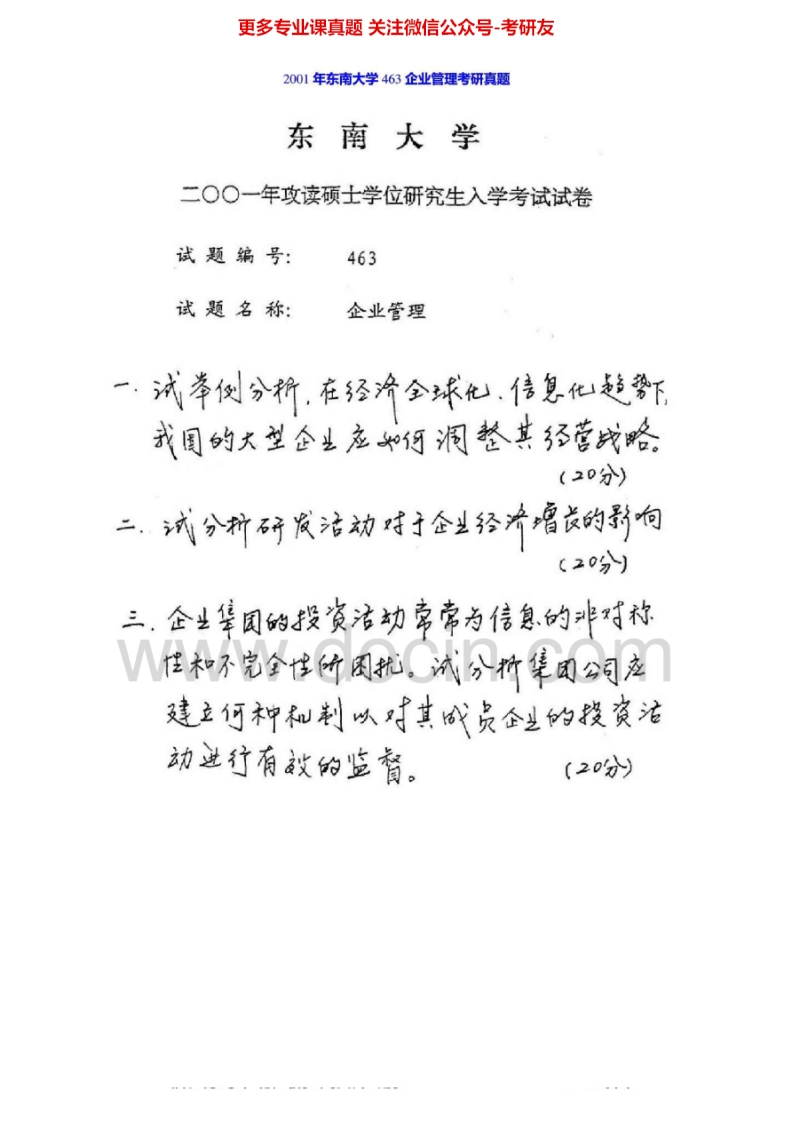 更多专业课真题 关注微信公众号-考研友
2001 年东南大学 463 企业管理考研真题
东 南 大 学
二〇〇一年攻读硕士学位研究生入学考试试卷
试 题 编 号: 463
试 题 名 称: 企业管理
一. 试举例分析,在经济全球化、信息化趋势下,
我国的大型企业应如何调整其经营战略。
(20分)
二. 试分析研发活动对于企业经济增长的影响
(20分)
三. 企业集团的投资活动常常为信息的非对称
www.docin.com
性和不完全性所困扰。试分析集团公司应
建立何种机制以对其成员企业的投资活
动进行有效的监督。 (20分)